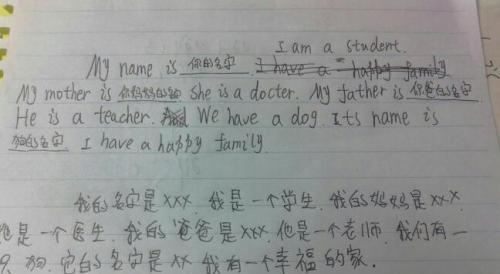 I am a student.
My name is 你的名字 I have a happy family
My mother is 你妈妈的名 she is a docter. My father is 你爸的名字
He is a teacher. We have a dog. Its name is
狗的名字 I have a happy family.
我的名字是xxx. 我是一个学生. 我的妈妈是xxx.
她是一个医生. 我的爸爸是xxx. 他是一个老师. 我们有一
只狗. 它的名字是xx 我有一个幸福的家.